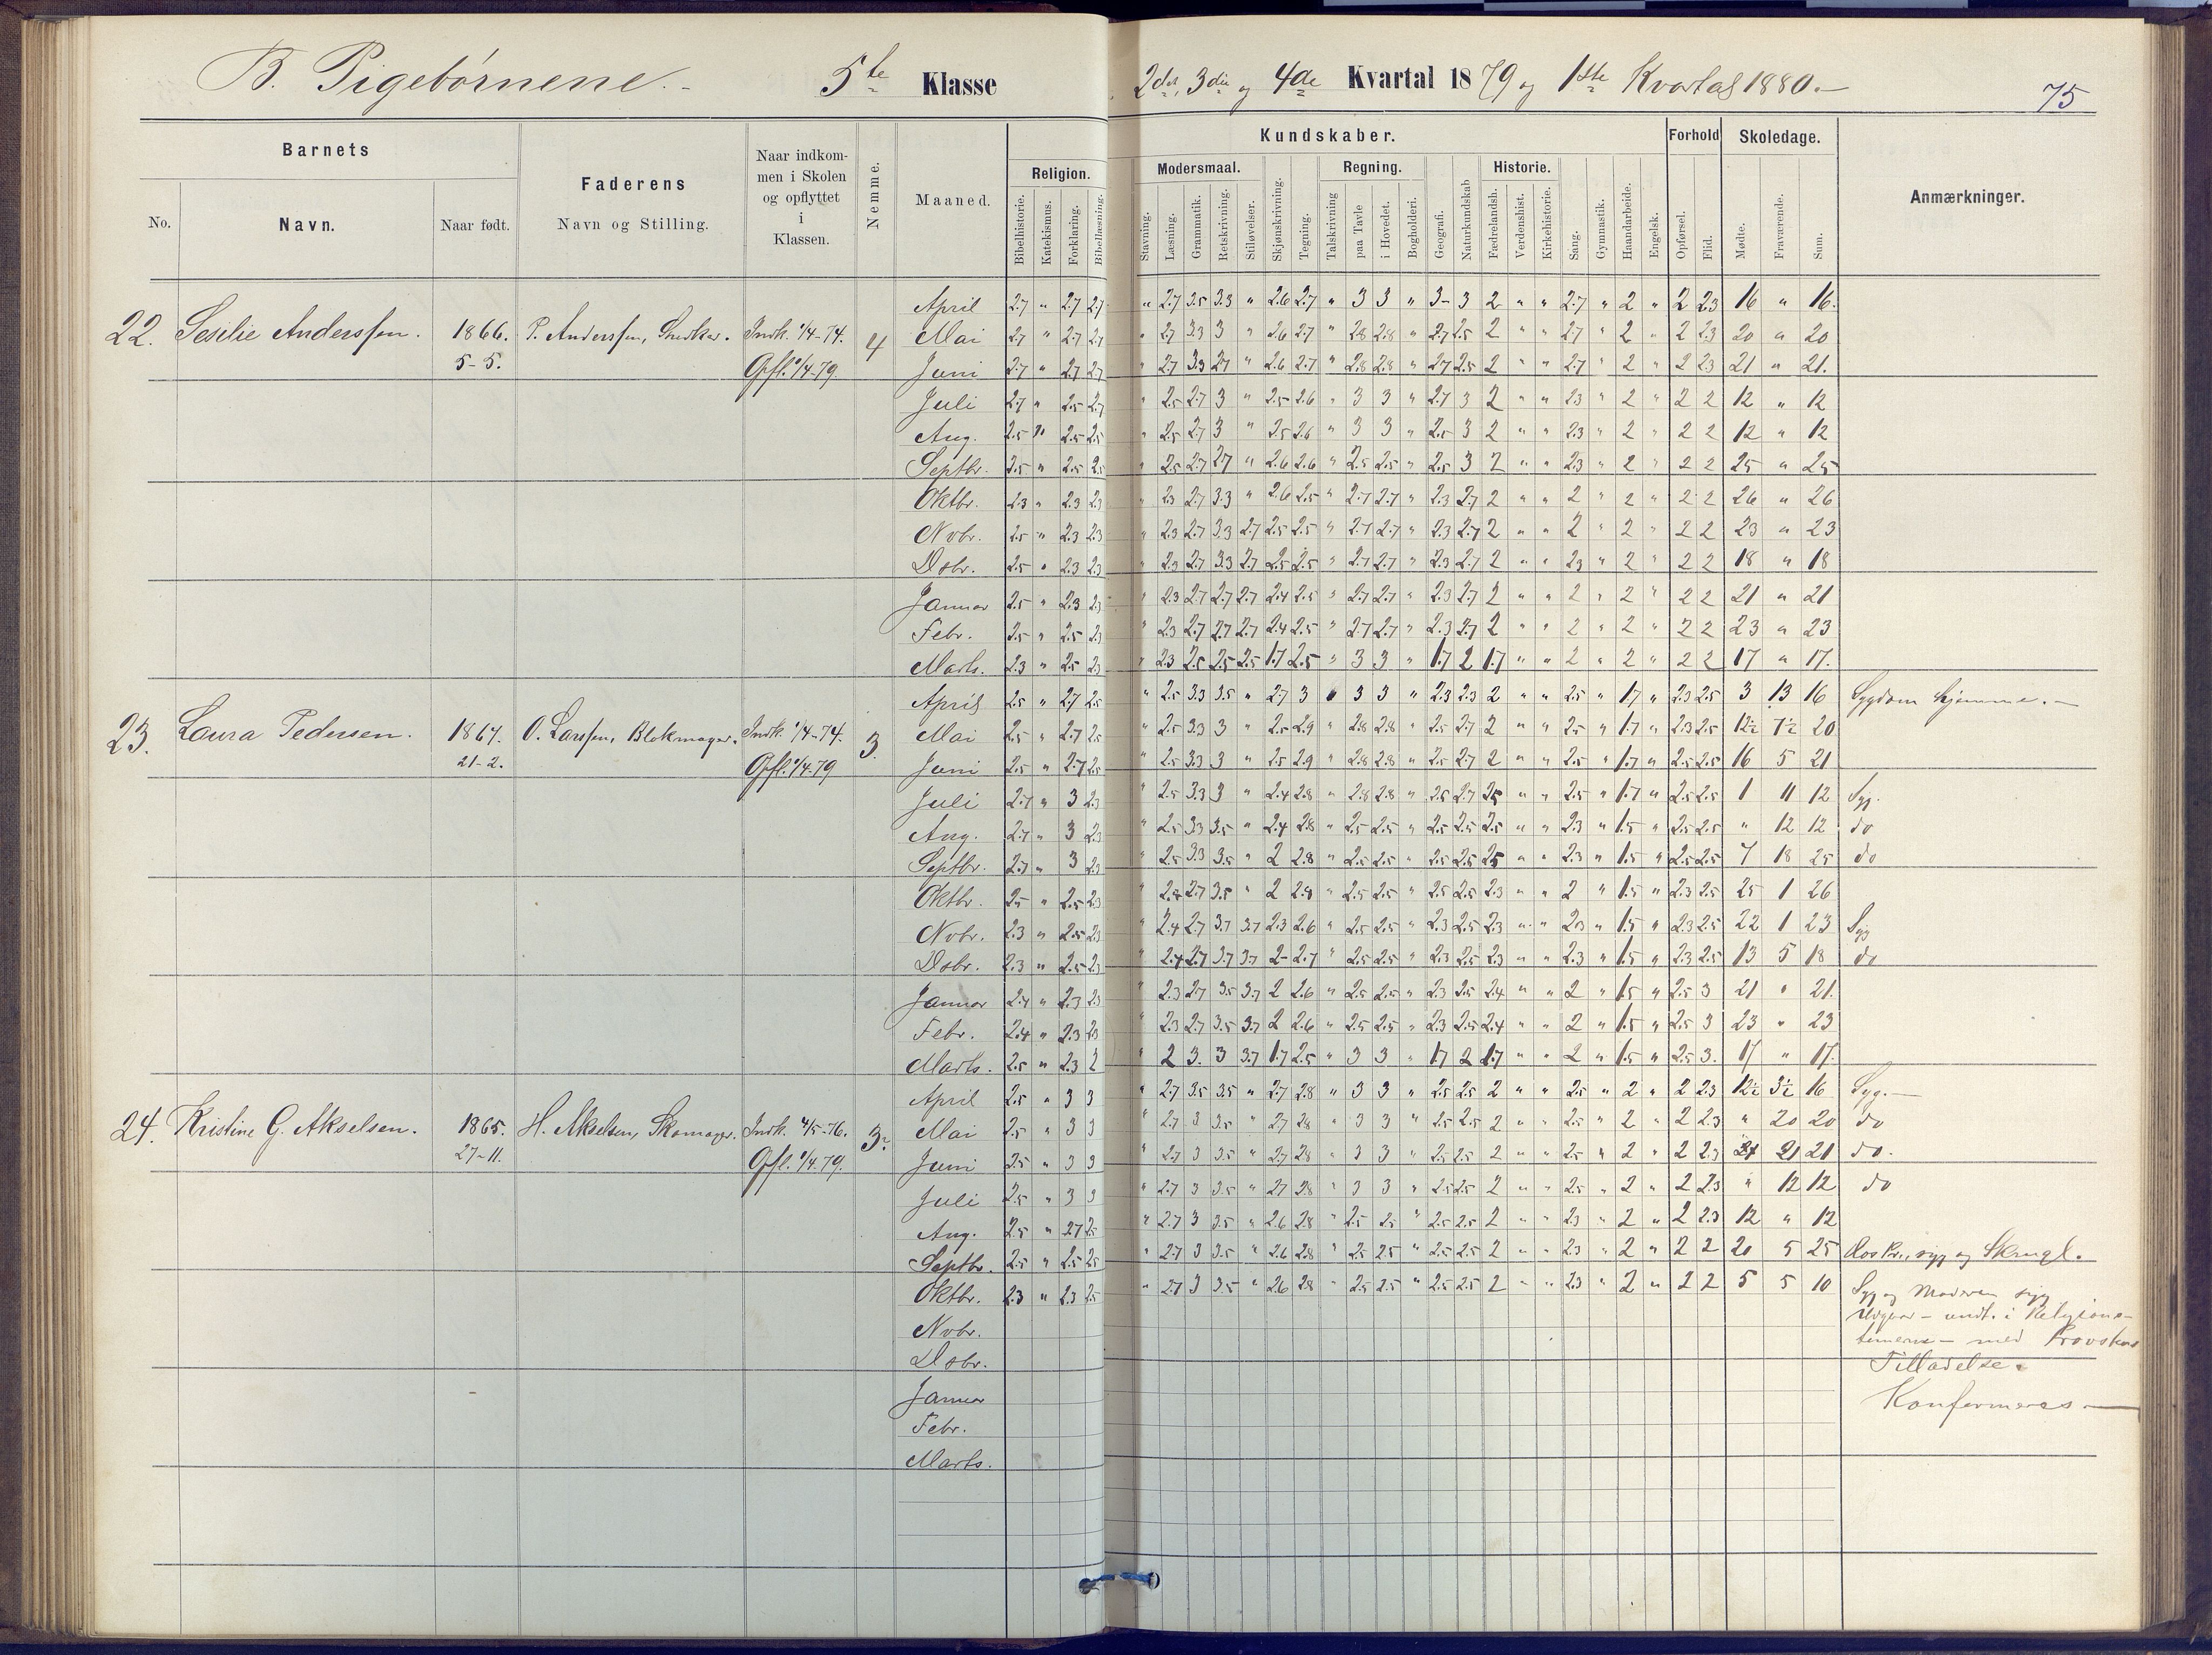 B. Pigebörnene. 5te Klasse 2det, 3die og 4de Kvartal 1879 og 1ste Kvartal 1880. 75
Barnets Faderens Naar indkommen i Skolen og opflyttet i Klassen. Nemme. Maaned. Religion. Kundskaber. Forhold Skoledage. Anmærkninger.
No. Navn. Naar født. Navn og Stilling. Modersmaal. Regning. Historie.
Bibelhistorie. Katekismus. Forklaring. Bibellæsning. Stavning. Læsning. Grammatik. Retskrivning. Stiløvelser. Skjønskrivning. Tegning. Talskrivning paa Tavle i Hovedet. Bogholderi. Geografi. Naturkundskab Fædrelandsh. Verdenshist. Kirkehistorie. Sang. Gymnastik. Haandarbeide. Engelsk. Opførsel. Flid. Mødte. Fraværende. Sum.
April 2.7 " 2.7 2.7 " 2.7 3.5 3.3 " 2.6 2.7 " 3 3 " 3- 3 2 " " 2.7 " 2 " 2 2.3 16 " 16.
22. Sesilie Anderssen. 1866. P. Anderssen, Snedker. Indk. 1/4-74. 4 Mai 2.7 " 2.7 2.7 " 2.7 3.3 3 " 2.6 2.7 " 2.8 2.8 " 2.7 2.5 2 " " 2.7 " 2 " 2 2.3 20 " 20
5-5. Opfl. 1/4-79 Juni 2.7 " 2.7 2.7 " 2.7 3.3 2.7 " 2.6 2.7 " 2.8 2.8 " 2.7 2.5 2 " " 2.7 " 2 " 2 2.3 21 " 21.
Juli 2.7 " 2.5 2.7 " 2.5 2.7 3 " 2.5 2.6 " 3 3 " 2.7 3 2 " " 2.3 " 2 " 2 2 12 " 12
Aug. 2.5 " 2.5 2.5 " 2.5 2.7 3 " 2.5 2.6 " 3 3 " 2.5 3 2 " " 2.3 " 2 " 2 2 12 " 12
Septbr. 2.5 " 2.5 2.5 " 2.5 2.7 2.7 " 2.6 2.6 " 2.5 2.5 " 2.5 3 2 " " 2.3 " 2 " 2 2 25 " 25
Oktbr. 2.3 " 2.3 2.3 " 2.3 2.7 3.3 " 2.6 2.5 " 2.7 2.7 " 2.3 2.7 2 " " 2 " 2 " 2 2 26 " 26
Nvbr. 2.5 " 2.3 2.3 " 2.3 2.7 3.3 2.7 2.5 2.5 " 2.7 2.7 " 2.3 2.7 2 " " 2 " 2 " 2 2 23 " 23
Dsbr. 2.5 " 2.3 2.3 " 2.3 2.7 3.3 2.7 2.5 2.5 " 2.7 2.7 " 2.3 2.7 2 " " 2.3 " 2 " 2 2 18 " 18
Januar 2.5 " 2.3 2.3 " 2.3 2.7 2.7 2.7 2.4 2.5 " 2.7 2.7 " 2.3 2.7 2 " " 2 " 2 " 2 2 21 " 21
Febr. 2.5 " 2.5 2.3 " 2.3 2.7 2.7 2.7 2.4 2.5 " 2.7 2.7 " 2.3 2.7 2 " " 2 " 2 " 2 2 23 " 23
Marts. 2.3 " 2.5 2.3 " 2.3 2.5 2.5 2.5 1.7 2.5 " 3 3 " 1.7 2 1.7 " " 2 " 2 " 2 2 17 " 17.
April 2.5 " 2.7 2.5 " 2.5 3.3 3.5 " 2.7 3 " 3 3 " 2.3 2.3 2 " " 2.5 " 1.7 " 2.3 2.5 3 13 16 Sygdom hjemme.
23. Laura Pedersen. 1867. O. Larssen, Blokmager. Indk. 1/4-74. 3. Mai 2.5 " 2.7 2.5 " 2.5 3.3 3 " 2.5 2.9 " 2.8 2.8 " 2.5 2.7 2 " " 2.5 " 1.7 " 2.3 2.5 12½ 7½ 20
21-2. Opfl. 1/4-79 Juni 2.5 " 2.7 2.5 " 2.5 3.3 3 " 2.5 2.9 " 2.8 2.8 " 2.5 2.7 2 " " 2.5 " 1.7 " 2.5 2.5 16 5 21
Juli 2.7 " 3 2.3 " 2.5 3.3 3 " 2.4 2.8 " 2.8 2.8 " 2.5 2.7 2.5 " " 2.5 " 1.7 " 2.5 2.5 1 11 12 Syg.
Aug. 2.7 " 3 2.3 " 2.5 3.3 3.5 " 2.4 2.8 " 2.5 2.5 " 2.5 2.5 2.5 " " 2.3 " 1.5 " 2.5 2.5 " 12 12 do
Septbr. 2.7 " 3 2.3 " 2.5 3.3 3.5 " 2 2.8 " 2.5 2.5 " 2.5 2.5 2.5 " " 2.3 " 1.5 " 2.5 2.5 7 18 25 do
Oktbr. 2.5 " 2.5 2.3 " 2.4 2.7 3.5 " 2 2.8 " 2.5 2.5 " 2.5 2.5 2.3 " " 2 " 1.5 " 2.3 2.5 25 1 26
Nvbr. 2.3 " 2.5 2.3 " 2.4 2.7 3.7 3.7 2.3 2.6 " 2.5 2.5 " 2.3 2.5 2.3 " " 2.3 " 1.5 " 2.3 2.5 22 1 23 Syg
Dsbr. 2.3 " 2.5 2.3 " 2.4 2.7 3.7 3.7 2- 2.7 " 2.5 2.5 " 2.3 2.5 2.3 " " 2.3 " 1.5 " 2.3 2.5 13 5 18 do
Januar 2.4 " 2.3 2.3 " 2.3 2.7 3.5 3.7 2 2.6 " 2.5 2.5 " 2.3 2.5 2.4 " " 2 " 1.5 " 2.5 3 21 " 21.
Febr. 2.4 " 2.3 2.3 " 2.3 2.7 3.5 3.7 2 2.6 " 2.5 2.5 " 2.3 2.5 2.4 " " 2 " 1.5 " 2.5 3 23 " 23
Marts. 2.5 " 2.3 2 " 2 3. 3 3.7 1.7 2.5 " 3 3 " 1.7 2 1.7 " " 2 " 1.5 " 2.5 3. 17 " 17.
April 2.5 " 3 3 " 2.7 3.5 3.5 " 2.7 2.8 " 3 3 " 2.5 2.5 2 " " 2.5 " 2 " 2 2.3 12½ 3½ 16 Syg.
24. Kristine G. Akselsen. 1865. H. Akselsen, Skomager. Indk. 4/5-76. 3. Mai 2.5 " 3 3 " 2.7 3 3.5 " 2.7 2.8 " 3 3 " 2.5 2.5 2 " " 2.5 " 2 " 2 2.3 " 20 20 do
27-11. Opfl. 1/4.79. Juni 2.5 " 3 3 " 2.7 3 3.5 " 2.7 2.8 " 3 3 " 2.5 2.5 2 " " 2.5 " 2 " 2 2.3 21 21 do.
Juli 2.5 " 3 3 " 2.7 3 3.5 " 2.7 2.8 " 3 3 " 2.5 2.5 2 " " 2.5 " 2 " 2 2.3 " 12 12 do
Aug. 2.5 " 2.7 2.5 " 2.7 3 3.5 " 2.6 2.8 " 2.5 2.5 " 2.5 2.5 2 " " 2.3 " 2 " 2 2.3 12 " 12
Septbr. 2.5 " 2.5 2.5 " 2.7 3 3.5 " 2.6 2.8 " 2.5 2.5 " 2.5 2.5 2 " " 2.3 " 2 " 2 2 20 5 25 syg og
Oktbr. 2.3 " 2.3 2.5 " 2.7 3 3.5 " 2.6 2.8 " 2.5 2.5 " 2.5 2.5 2 " " 2.3 " 2 " 2 2 5 5 10 Syg og Moderen syg
Nvbr. Udgaar - undt. i Religions-
timerne - med Provstens
Dsbr. Tilladelse.
Januar Konfermeres
Febr.
Marts.